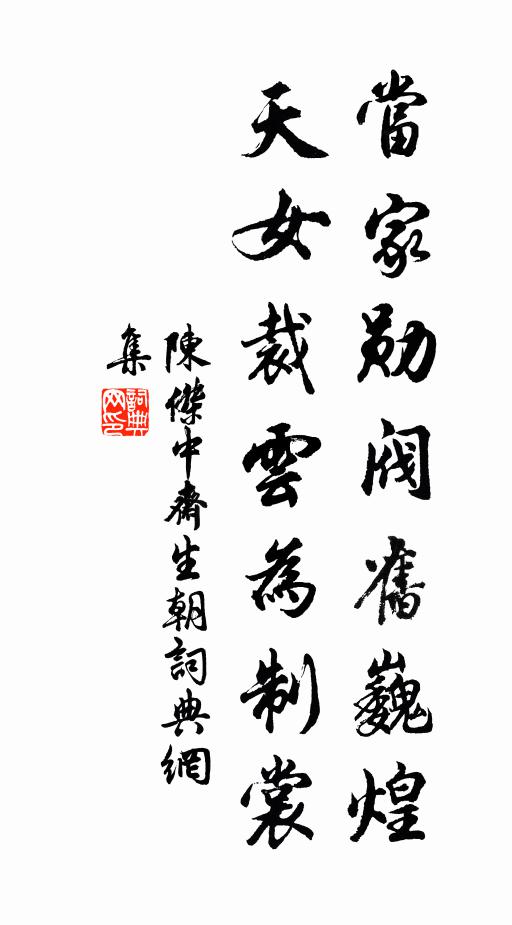 當家勛閥舊巍煌
天女裁雲為制裳
陳傑中齋生朝詞典網
集
詞典
网印